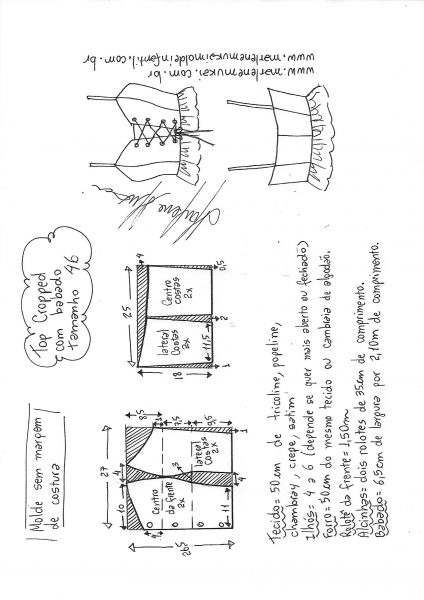 www.marlenemukai.com.br
www.marlenemukaimoldeinfantil.com.br
Marlene Mukai
Top Cropped
com babado
tamanho 46
Molde sem margem
de costura
25
4
Centro
costas
2x
lateral
costas
2x
18
11,5
1
2
0,5
27
10
4
8,5
1
7,5
9,5
3
lateral
costas
2x
Centro
da frente
2x
4
11
4
1
25
26,5
Tecido = 50cm de tricoline, popeline,
chambray, crepe, satim
Ilhós = 4 a 6 (depende se quer mais aberto ou fechado)
Forro = 50cm do mesmo tecido ou cambraia de algodão.
Rolotê da frente = 1,50m
Alcinhas = dois rolotes de 35cm de comprimento.
Babado = 6,5cm de largura por 2,10m de comprimento.